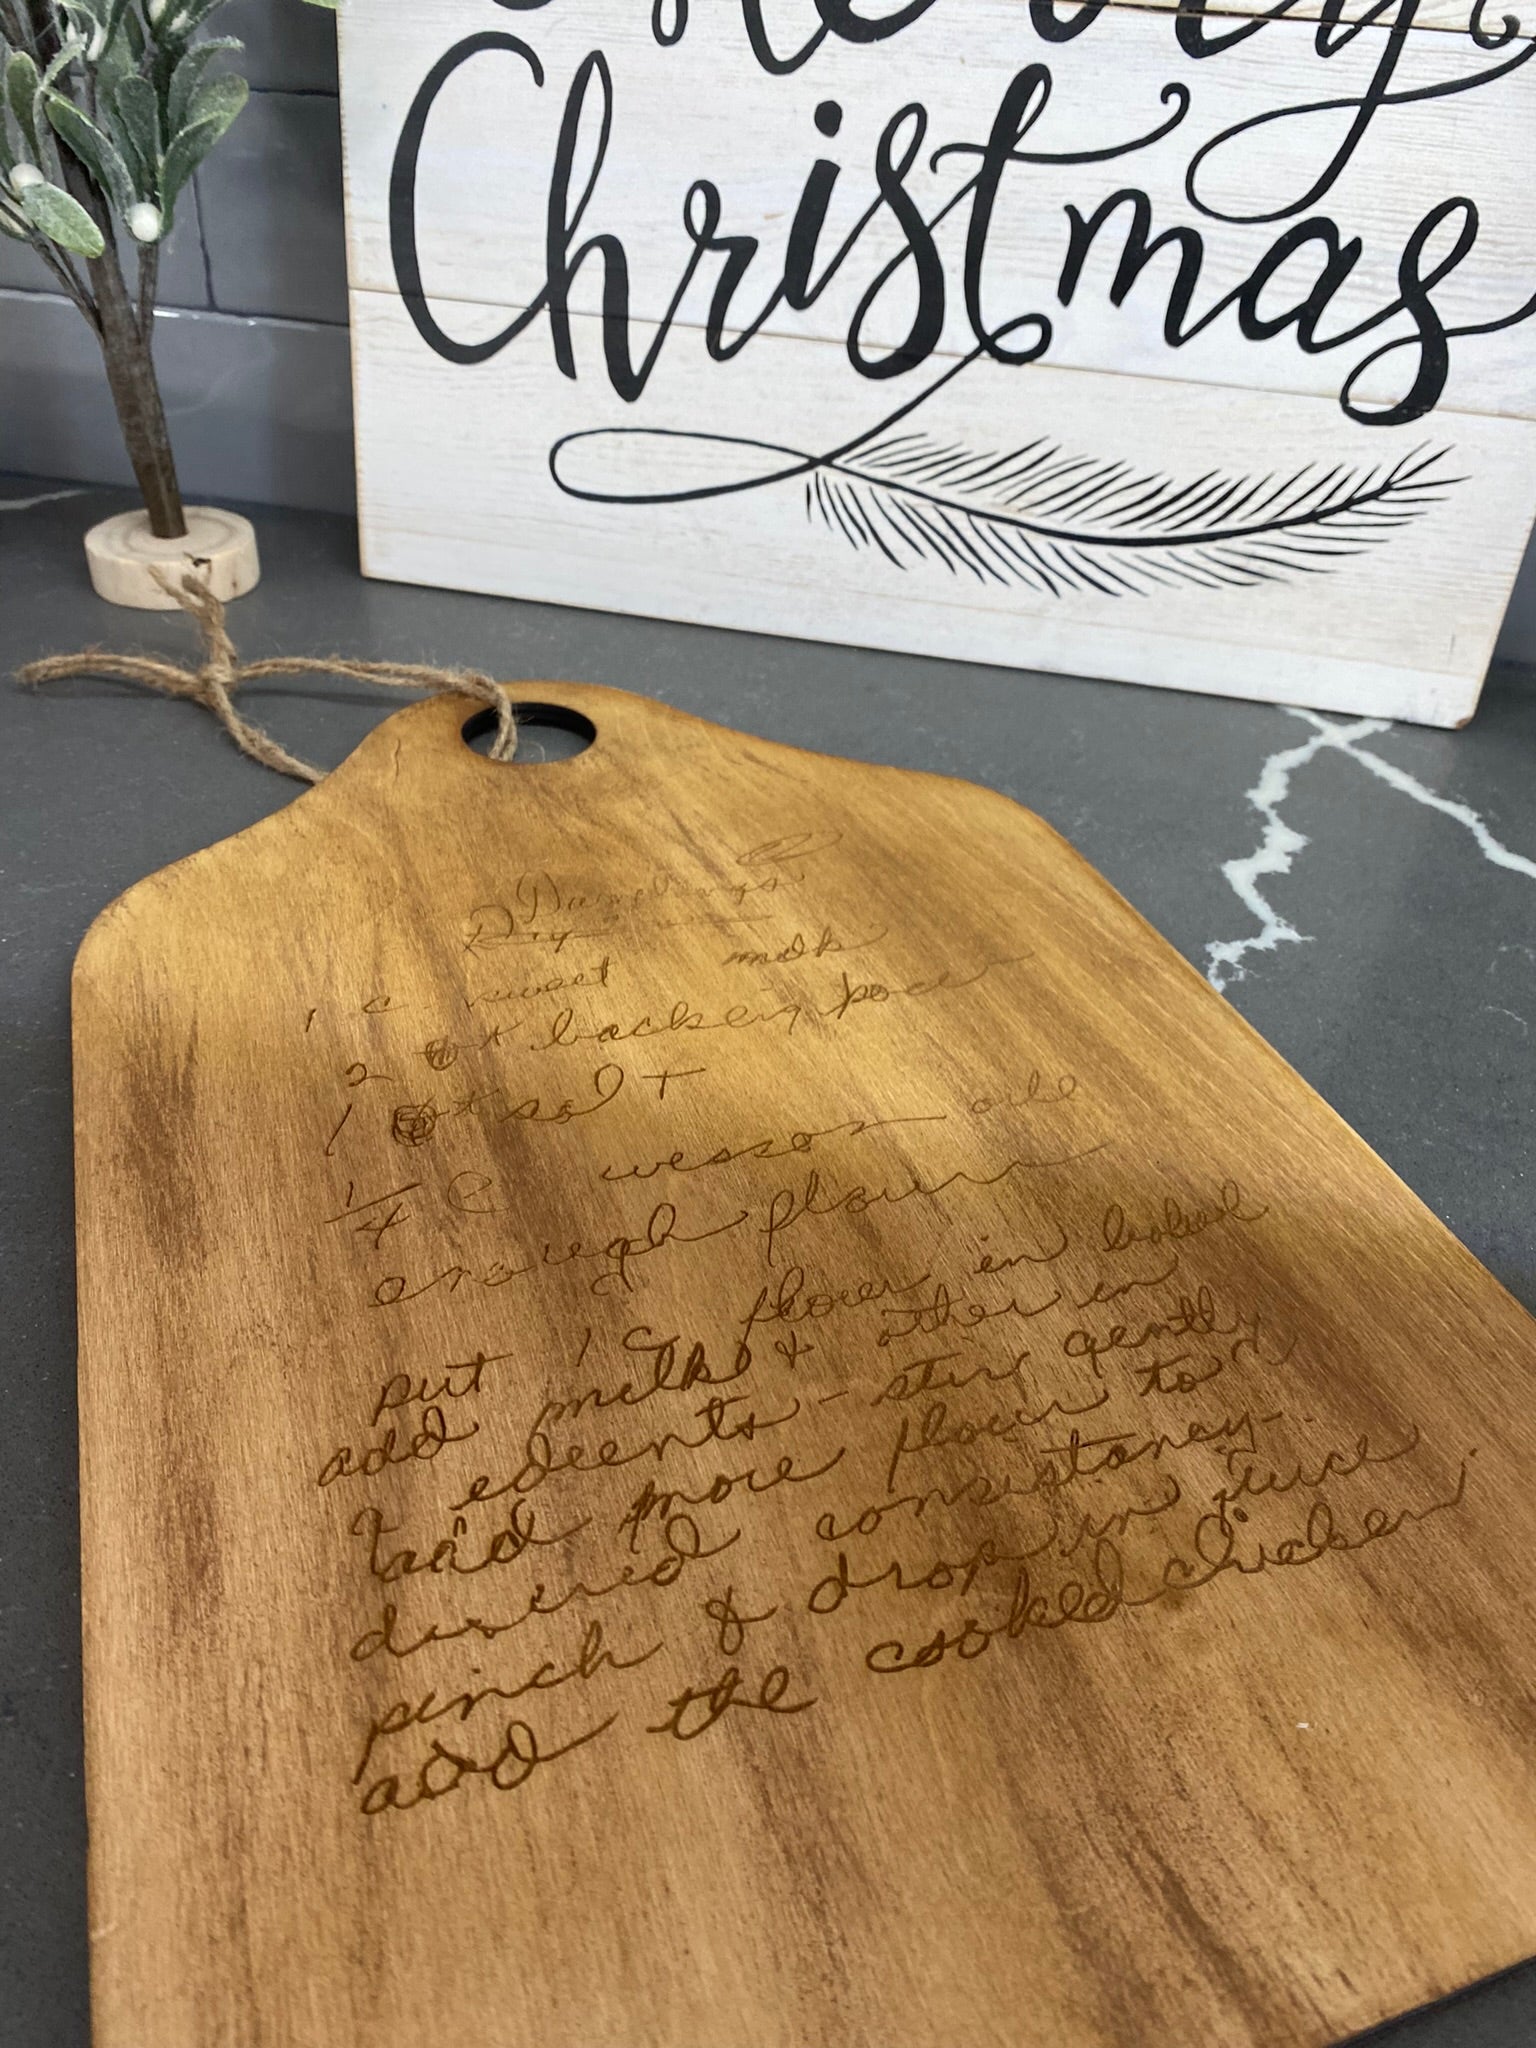 Merry
Christmas
Dumplings
Dry
1 c sweet milk
2 t backing poder
1 t salt
1/4 C wesson oil
enough flour
put 1 c flour in bowl
add milk & other in
edeents - stir gently
add more flour to
desired consistancy -
pinch & drop in juice
add the cooked chicken.